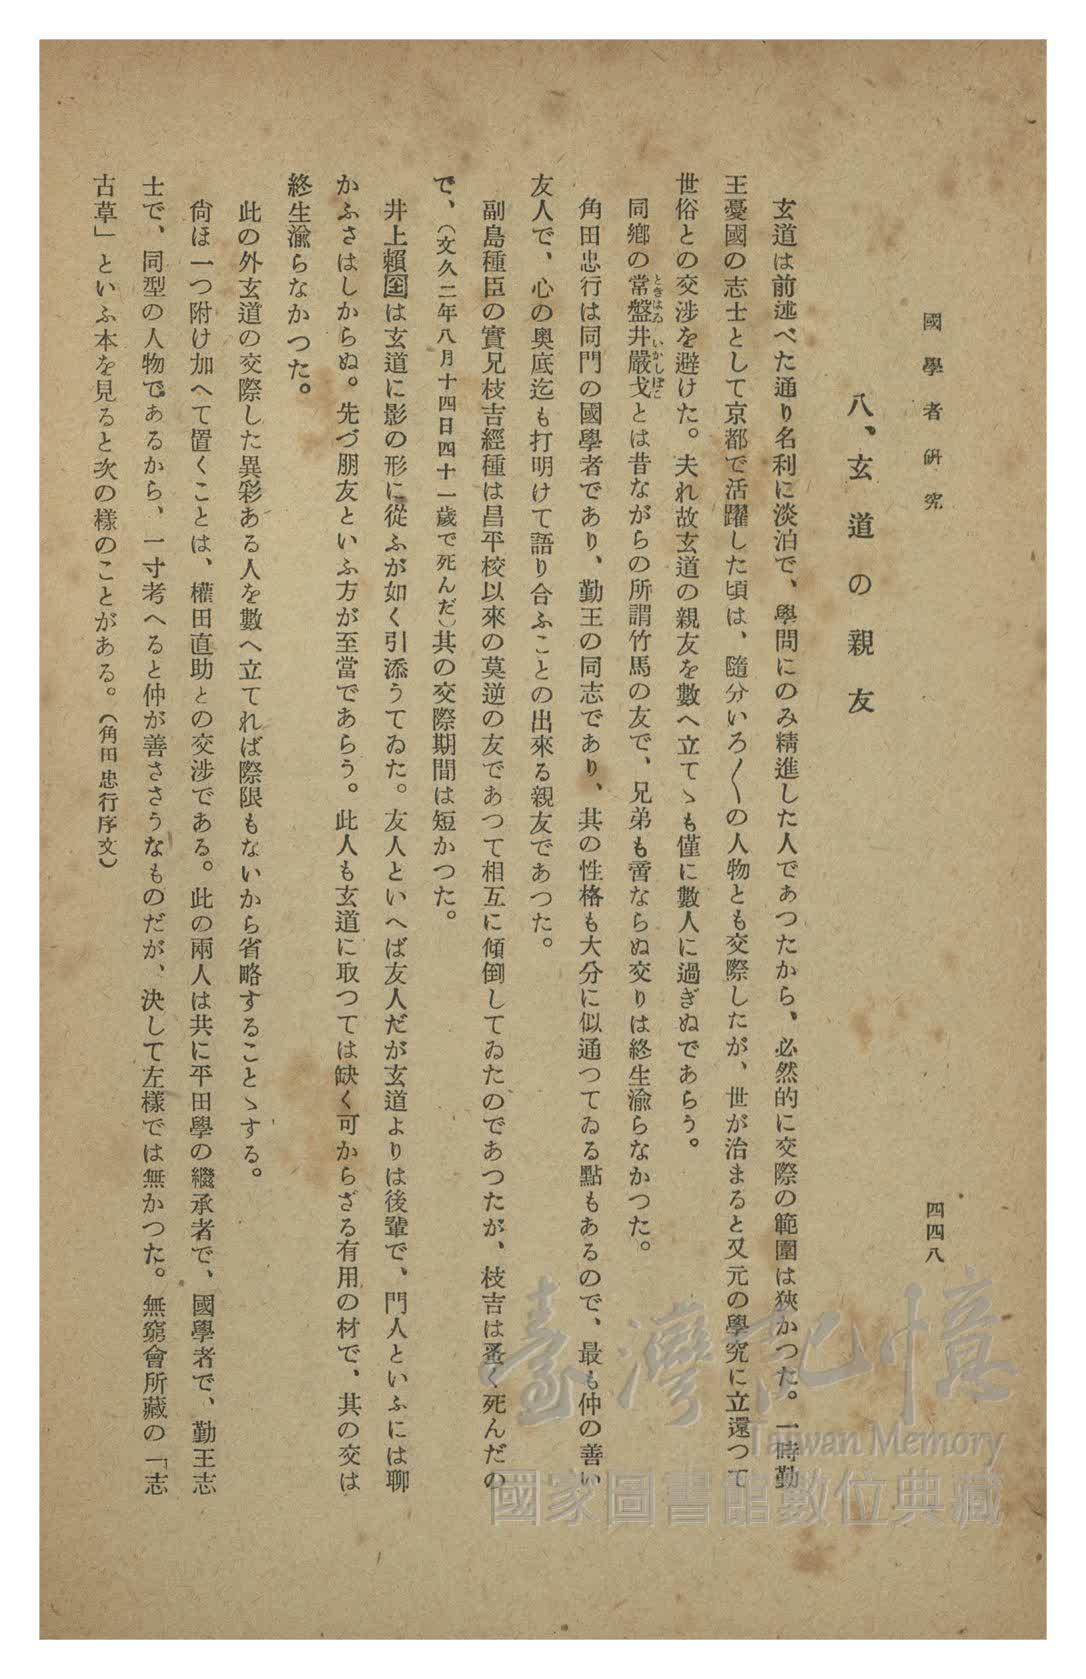 國學者硏究
四四八
八、玄道の親友
玄道は前述べた通り名利に淡泊で、學問にのみ精進した人であつたから、必然的に交際の範圍は狹かつた。一時勤
王憂國の志士として京都で活躍した頃は、隨分いろ〱の人物とも交際したが、世が治まると又元の學究に立還つて
世俗との交渉を避けた。夫れ故玄道の親友を數へ立てゝも僅に數人に過ぎぬであらう。
同鄕の常盤井嚴戈とは昔ながらの所謂竹馬の友で、兄弟も啻ならぬ交りは終生渝らなかつた。
ときはゐ いかしほこ
角田忠行は同門の國學者であり、勤王の同志であり、其の性格も大分に似通つてゐる點もあるので、最も仲の善い
友人で、心の奧底迄も打明けて語り合ふことの出來る親友であつた。
副島種臣の實兄枝吉經種は昌平校以來の莫逆の友であつて相互に傾倒してゐたのであつたが、枝吉は蚤く死んだの
で、（文久二年八月十四日四十一歲で死んだ）其の交際期間は短かつた。
井上賴囶は玄道に影の形に從ふが如く引添うてゐた。友人といへば友人だが玄道よりは後輩で、門人といふには聊
かふさはしからぬ。先づ朋友といふ方が至當であらう。此人も玄道に取つては缺く可からざる有用の材で、其の交は
終生渝らなかつた。
此の外玄道の交際した異彩ある人を數へ立てれば際限もないから省略することゝする。
尙ほ一つ附け加へて置くことは、權田直助との交渉である。此の兩人は共に平田學の繼承者で、國學者で、勤王志
士で、同型の人物であるから、一寸考へると仲が善ささうなものだが、決して左樣では無かつた。無窮會所藏の「志
古草」といふ本を見ると次の樣のことがある。（角田忠行序文）
臺灣記憶
Taiwan Memory
國家圖書館數位典藏